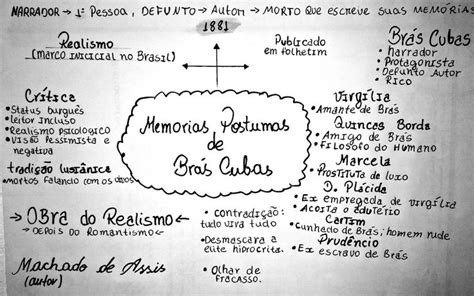 NARRADOR → 1ª Pessoa, DEFUNTO → Autor → MORTO QUE escreve suas MEMÓRIAS
1881
Realismo
(MARCO INICICAL no Brasil)
Publicado
em folhetim
Brás Cubas
• Narrador
• Protagonista
• Defunto Autor
• Rico
Crítica
• Status burguês
• leitor incluso
• Realismo psicologico
• Visão Pessimista e
negativa
tradição lusiânica
• mortos falancio com os vivos
Memorias Postumas
de
Brás Cubas
Virgília
• Amante de Brás
Quincas Borda
• Amigo de Brás
• Filosofo do Humano
Marcela
• Prostituta de luxo
D. Plácida
• Ex empregada de virgília
• Acoita o adutério
Cotrim
• Cunhado de Brás; homem rude
Prudêncio
• Ex escravo de Brás
→ OBra do Realismo ←
→ Depois do Romantismo ←
Machado de Assis
(autor)
• contradição:
tudo vira tudo
• Desmascara a
elite hipocrita.
• Olhar de
fracasso.